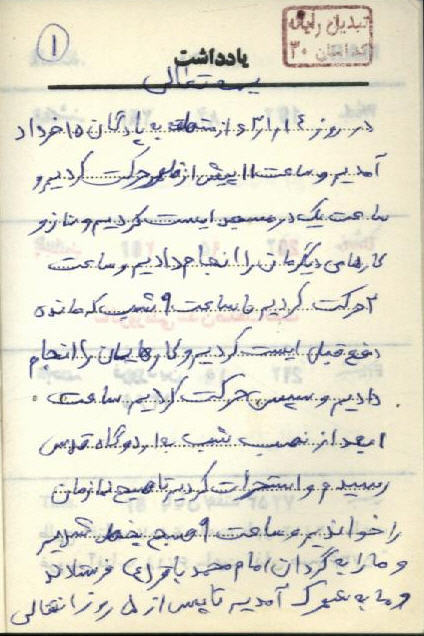 ۱
تبدیل رایانه
کد استان ۳۰
یادداشت
بسمه تعالی
در روز از منطقه به پادگان ۱۵ خرداد
آمدیم و ساعت ۱۱ پیش از ظهر حرکت کردیم و
ساعت یک در مسجد ایست کردیم و نماز و
کارهای دیگرمان را انجام دادیم و ساعت
۲ حرکت کردیم تا ساعت ۹ شب که مانده
دفع قبل ایست کردیم و کارهایمان را انجام
دادیم و سپس حرکت کردیم ساعت
۱ بعد از نصب شب به اردوگاه قدس
رسیدیم و استراحت کردیم تا صبح نمازمان
را خواندیم و ساعت ۹ صبح بخط شدیم
و ما را به گردان امام محمد باقر (ع) فرستادند
و ما به آمدیم تا پس از ۵ روز انتقالی